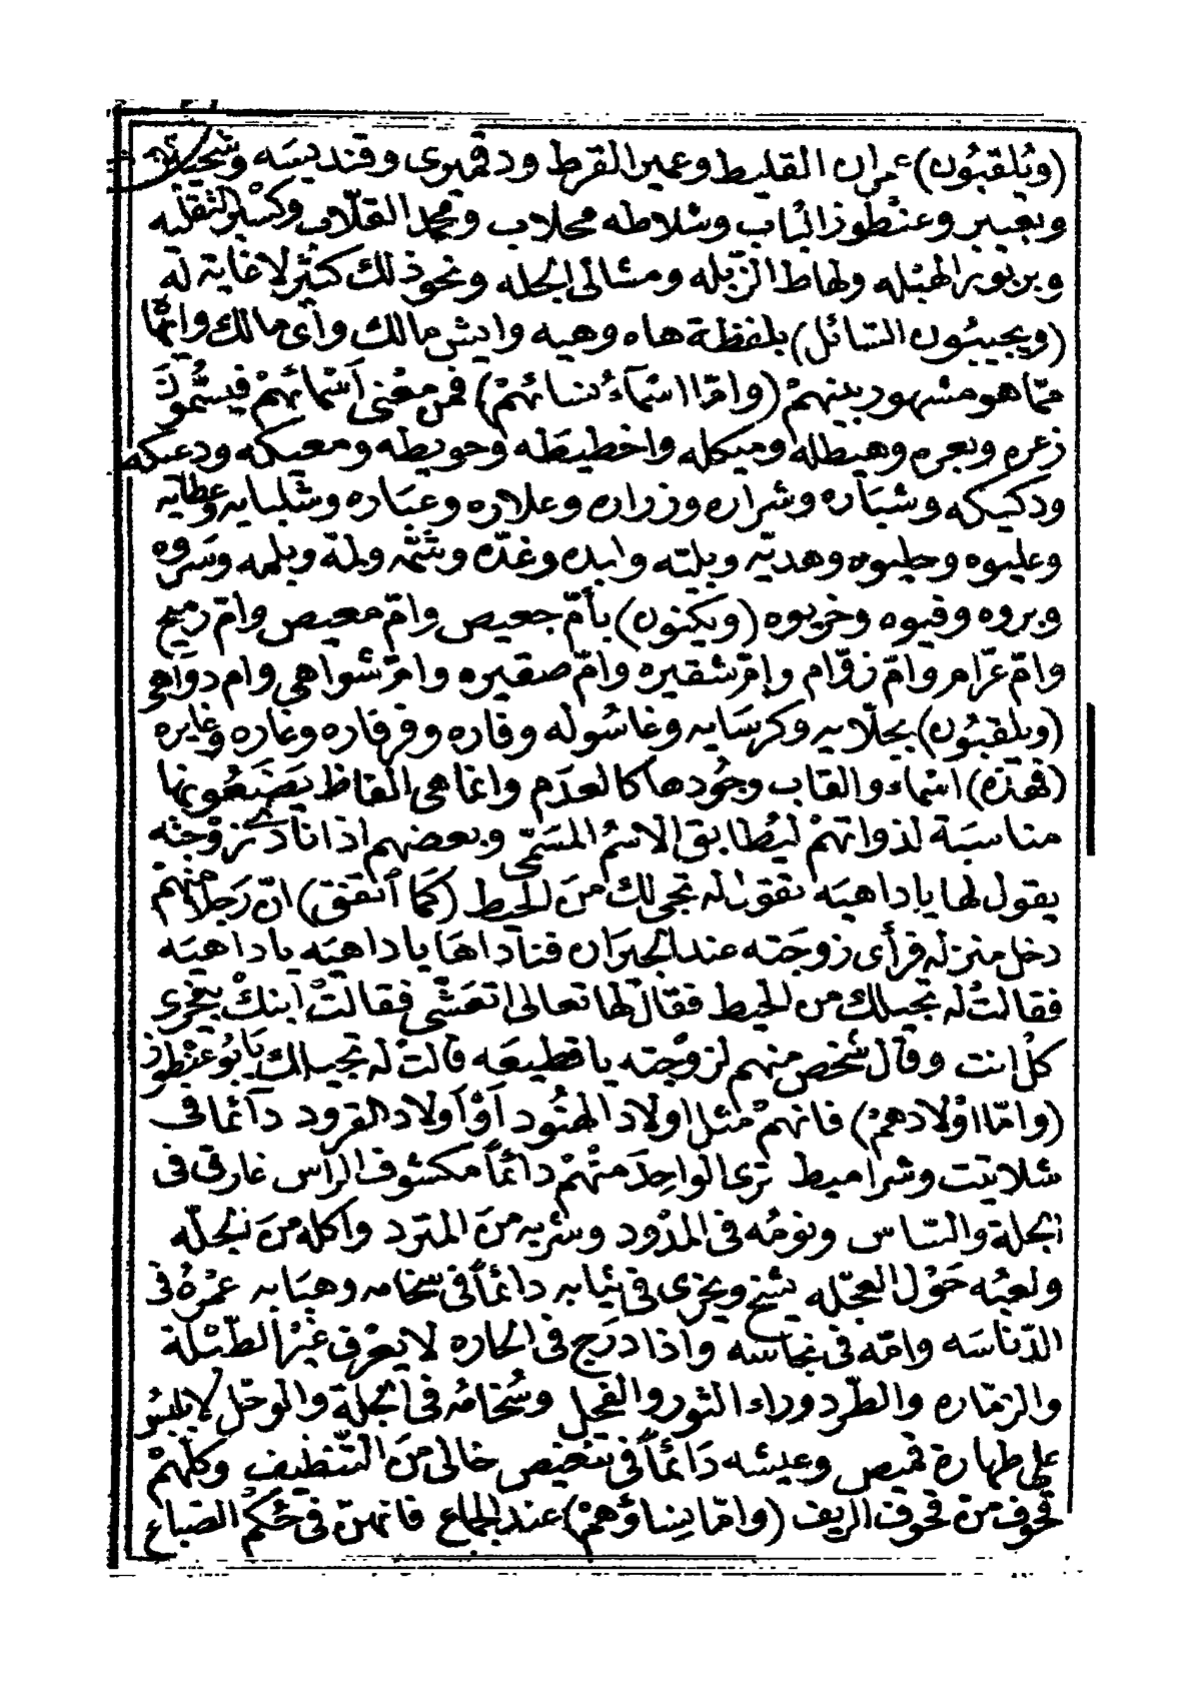 (ويُلقبُون) عمران القليط وعمير القرط ودقموى وقنديسَه
وبعيبر وعنْطوز الباب وشلاطه محلاب ومحمد القلاب وكسْبر التقليه
وبربور الهبْله ولهاط الزّبله ومشالى الجله ونحو ذلك كثيْر لا غاية له
(ويجيبُون السّائل) بلفظة هاه وهيه وايش مالك وآى مالك وانمّا
ممّا هو مشهور بينهمْ (وامّا اسْمآءُ نسائهمْ) فمن معْنى اَسْمائهمْ فيسَمُّونَ
زعره وبعره وهبطله وميكله واخطيطَه وحويطه ومعيكه ودعكه
ودكيكه وشبّاره وشراره وزراره وعلاره وعبَاره وشلبايه وعطايه
وعليوه وحليوه وهديّه وبليّه وابده وغدّه وشمّه ولمّة وبلمه وسَروه
وبروه وقيوه وخريوه (ويكنون) بأمّ جعيص وامّ معيص وامّ رميح
وامّ عرّام وامّ زقّام وامّ شقيره وامّ صقيره وامّ شواهى وام دوآهى
(ويلقبُون) بجلّايه وكرسَايه وغاشوله وقاره وفرقاره وغاره وغايره
(فهَذه) اسْماء والقاب وجُودها كالعدَم وانما هى الفاظ يَصْنَعُونها
مناسبَة لذواتهمْ ليُطابق الاسْمُ المسَمّى وبعضهم اذا نآدى زوْجته
يقول لها ياداهيَه تقول له تجى لك منَ الحيط (كمَا اتفق) انّ رَجلا منهمْ
دخل منزله فرأى زوجَته عند الجيران فنآداهَا ياداهيَه ياداهيَه
فقالتْ له تجيلك من الحيط فقال لها تعالى اتعَشّى فقالتْ ابنكْ يخرى
كلْ انت وقال شخص منهم لزوْجته ياقطيعَه قالتْ له تجيلك يابُو عنْطوز
(وامّا اوْلادهمْ) فانهمْ مثل اولاد الهنُود اَوْ اَولاد القرود دآئما فى
شلاتيت وشراميط ترى الواحِدَ منْهمْ دائماً مكشوف الرآس غارق فى
الجلة والسّاس ونومُه فى المدْود وشربه منَ المترد واكله منَ الجلّه
ولعبُه حَوْل العجّله يشخ ويخرى فى ثيابه دائماً فى سخامه وهبَابه عمْرهُ فى
الدّناسَه وامّه فى نجاسَه واذا درَج فى الحاره لا يعْرف غيْر الطّبْلة
والزمّاره والطّرد وراء الثور والفحل وسُخامُه فى الجلة والوحْل لا يلبسُ
على طهارة قميص وعيشه دَائماً فى تنغيص خالى منَ التّنظيف وكلّهمْ
قحوف منْ قحوف الريف (وامّا نِساؤهمْ) عند الجماع فانهنّ فى حُكم الضبَاع